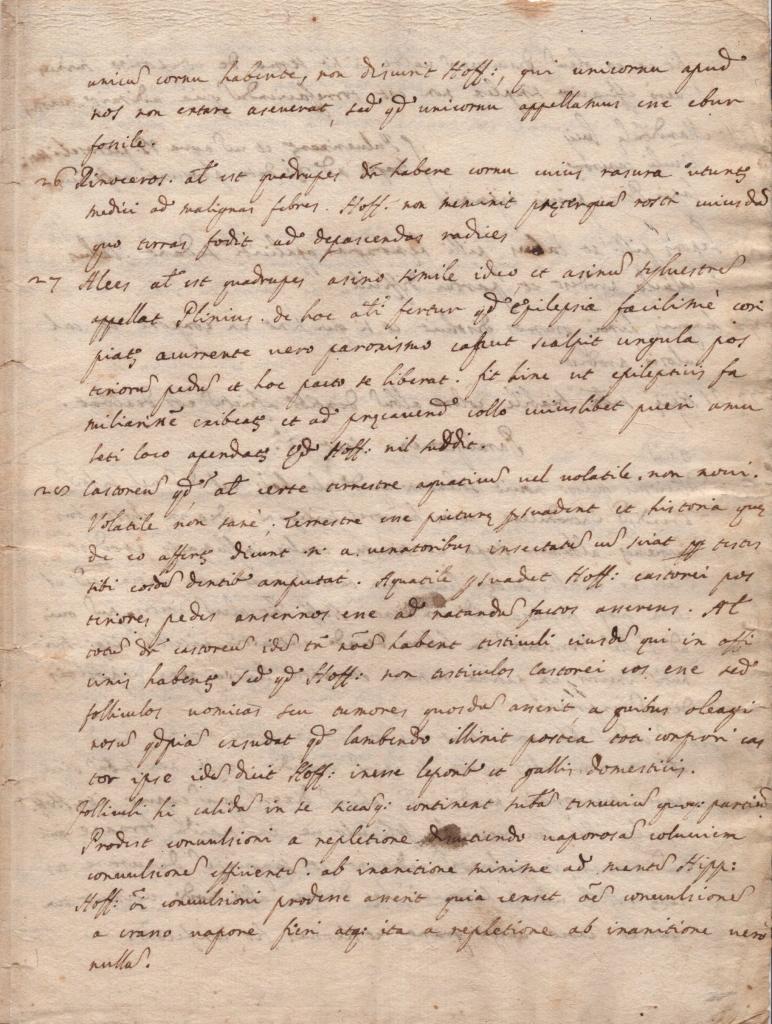 unicū cornu habente, non discurit Hoff:, qui unicornu apud
nos non extare aseverat, sed qd unicornu appellamus esse ebur
fossile.
26 Rinoceros. al est quadrupes dr habere cornu cuius rasura utunt
medici ad malignas febres. Hoff. non meminit pręterquā rostri cuiusdā
quo terras fodit ad depascendas radices
27 Alces al est quadrupes asino simile ideo et asinū sylvestrē
appellat Plinius. de hoc ali fertur qd Epilepsia facilimè cori
piat, acurrente vero paroxismo caput scalpit ungula pos
teriorū pedū et hoc pacto se liberat. fit hinc ut epileptius fa
exibeat et ad pręcavend collo cuiuslibet pueri amu
leti loco apendat Hoff: nil
28 Castoreū qd al terrestre aquaticū vel volatile, non novi.
Volatile non sanè, Terrestre esse picturę psuadent et historia quę
de eo affert, dicunt n. a venatoribus insectatū testes
sibi eosdē dentib amputat. Aquatile psuadet Hoff: castorei pos
teriores pedes anserinos esse ad natandū factos asserens. Al
totū dr castoreū idē tn noē habent testiculi eiusdē qui in offi
cinis habent, Sed qd Hoff: non testiculos Castorei eos esse sed
folliculos vomicas seu tumores quosdā asserit, a quibus oleagi
nosū qdpiā exsudat qd lambendo illinit postea toti corpori cas
tor ipse idē dicit Hoff: inesse leporib et gallis domesticis.
Folliculi hi calidā in se siccaq: continent subā tenuviū quoq: partiū
Prodest convulsioni a repletione discutiendo vaporosā coluviem
convulsionē efficientē. ab inanitione minime ad mentē Hipp:
Hoff: oi convulsioni prodesse asserit quia censet oē convulsionē
a crasso vapore fieri atq: ita a repletione ab inanitione vero
nullā.